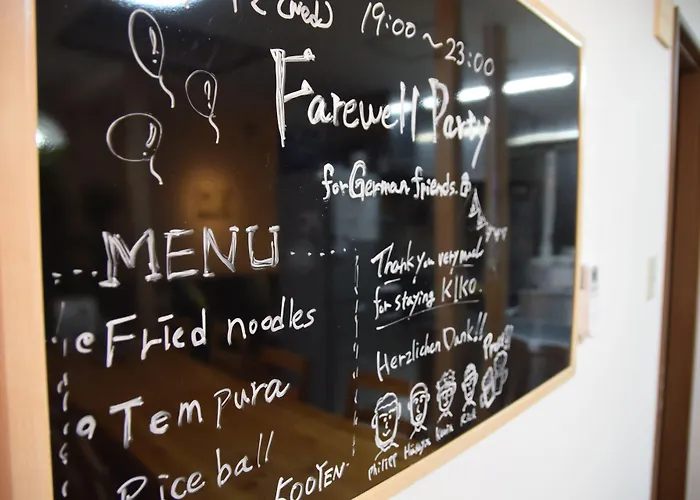 (Wed.) 19:00~23:00
Farewell Party
for German friends.
MENU
Fried noodles
Tempura
Rice ball
Thank you very much
for staying KIKO.
Herzlichen Dank!!